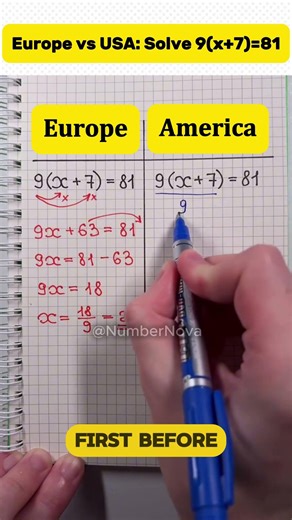 Europe vs USA: Solve 9(x+7)=81
Europe
America
9(x+7)=81
x x
9x+63=81
9x=81-63
9x=18
x=18/9=
9(x+7)=81
9
@NumberNova
FIRST BEFORE